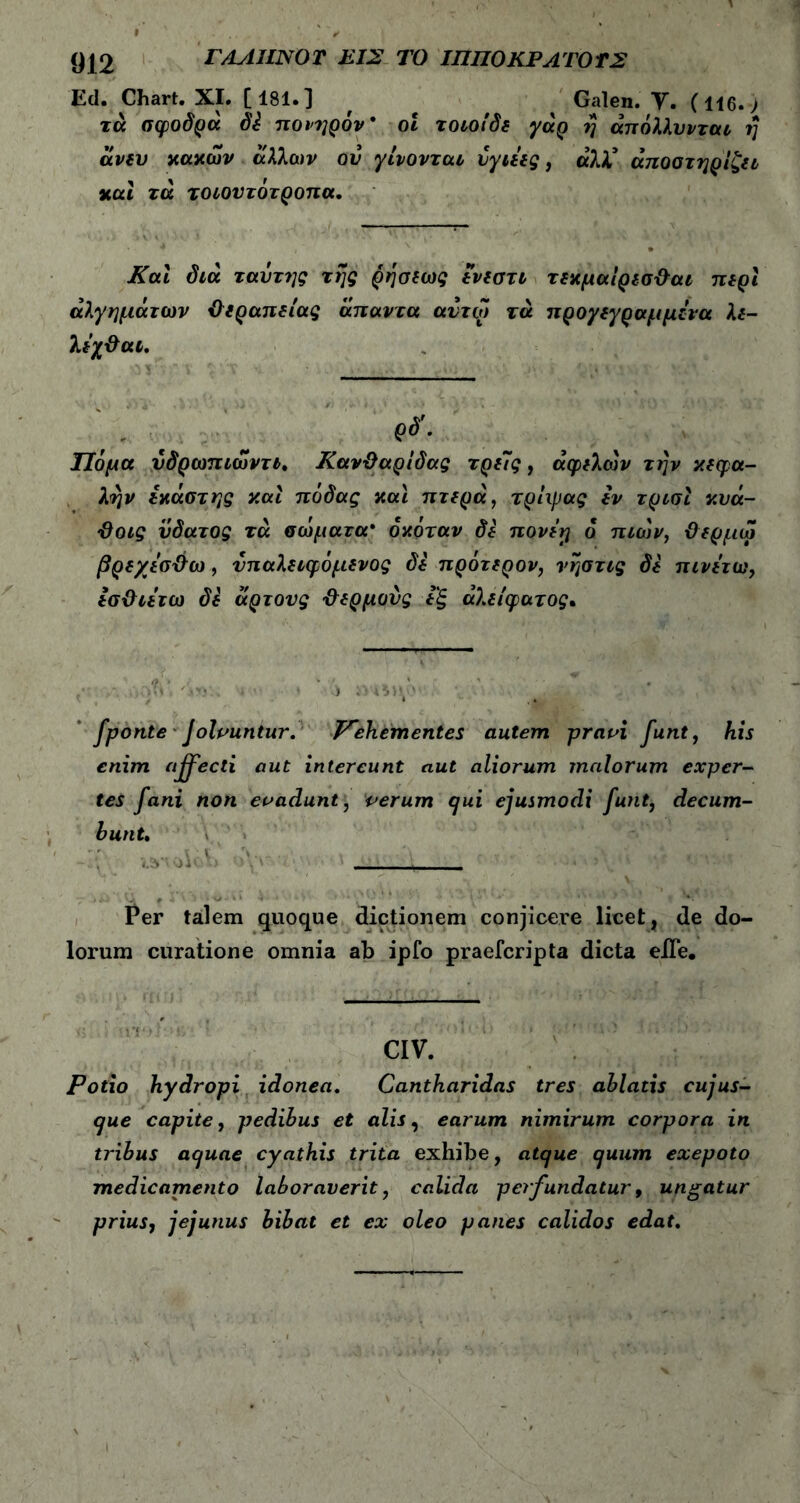 912 ΓΑΛΗΝΟΥ ΕΙΣ ΤΟ ΙΠΠΟΚΡΑΤΟΥΣ
Ed. Chart. XI. [181.] Galen. V. (116.)
τὰ σφοδρὰ δὲ πονηρόν· οἱ τοιοίδε γὰρ ἢ ἀπόλλυνται ἢ
ἄνευ κακῶν ἄλλων οὐ γίνονται ὑγιέες, ἀλλ’ ἀποστηρίζει
καὶ τὰ τοιουτότροπα.
Καὶ διὰ ταύτης τῆς ῥήσεως ἔνεστι τεκμαίρεσθαι περὶ
ἀλγημάτων θεραπείας ἅπαντα αὐτῷ τὰ προγεγραμμένα λε-
λέχθαι.
ρδ′.
Πόμα ὑδρωπιῶντι. Κανθαρίδας τρεῖς, ἀφελὼν τὴν κεφα-
λὴν ἑκάστης καὶ πόδας καὶ πτερὰ, τρίψας ἐν τρισὶ κυά-
θοις ὕδατος τὰ σώματα· ὁκόταν δὲ πονέῃ ὁ πιὼν, θερμῷ
βρεχέσθω, ὑπαλειφόμενος δὲ πρότερον, νῆστις δὲ πινέτω,
ἐσθιέτω δὲ ἄρτους θερμοὺς ἐξ ἀλείφατος.
ſponte ſolvuntur. Vehementes autem pravi ſunt, his
enim affecti aut intereunt aut aliorum malorum exper-
tes ſani non evadunt, verum qui ejusmodi ſunt, decum-
bunt.
Per talem quoque dictionem conjicere licet, de do-
lorum curatione omnia ab ipſo praeſcripta dicta eſſe.
CIV.
Potio hydropi idonea. Cantharidas tres ablatis cujus-
que capite, pedibus et alis, earum nimirum corpora in
tribus aquae cyathis trita exhibe, atque quum exepoto
medicamento laboraverit, calida perfundatur, ungatur
prius, jejunus bibat et ex oleo panes calidos edat.